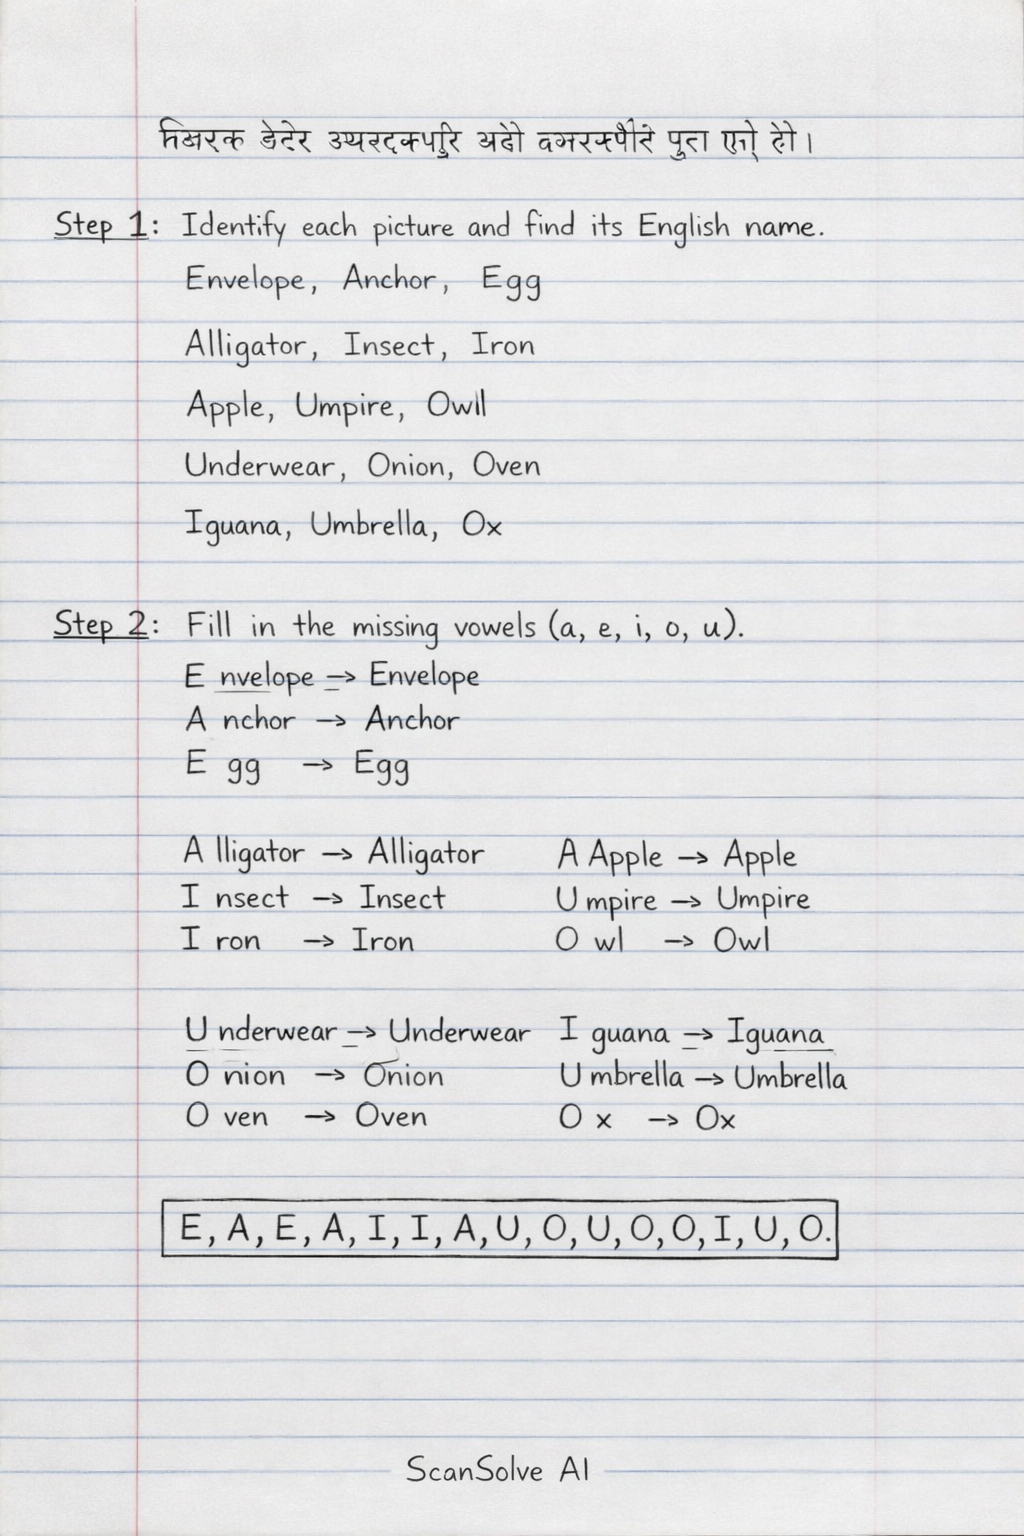 Step 1: Identify each picture and find its English name.
Envelope, Anchor, Egg
Alligator, Insect, Iron
Apple, Umpire, Owll
Underwear, Onion, Oven
Iguana, Umbrella, Ox
Step 2: Fill in the missing vowels (a, e, i, o, u).
E nvelope → Envelope
A nchor → Anchor
E gg → Egg
A lligator → Alligator
I nsect → Insect
I ron → Iron
A Apple → Apple
U mpire → Umpire
O wl → Owl
U nderwear → Underwear
O nion → Onion
O ven → Oven
I guana → Iguana
U mbrella → Umbrella
O x → Ox
E, A, E, A, I, I, A, U, O, U, O, O, I, U, O.
ScanSolve AI